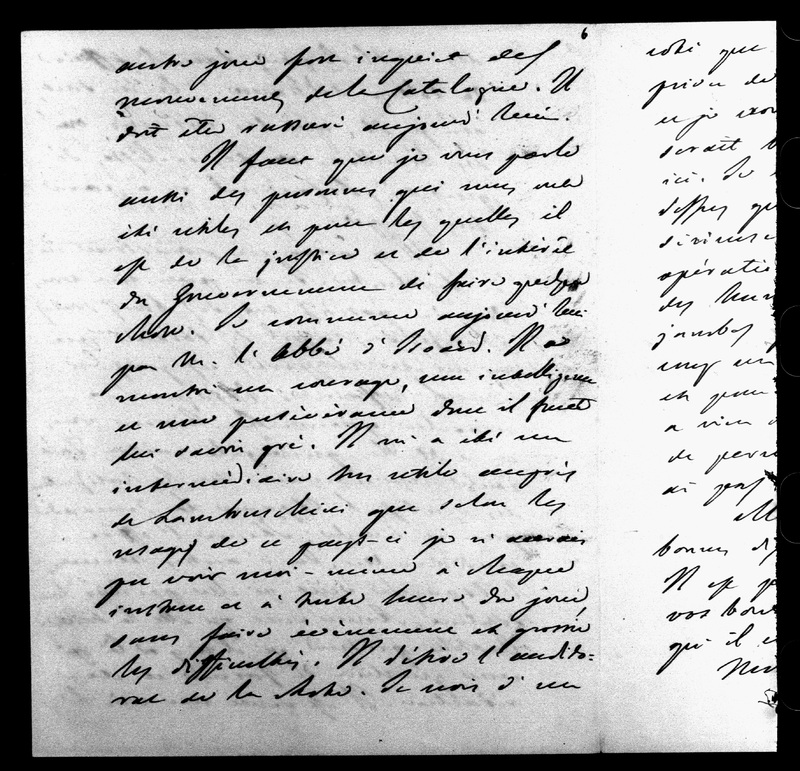 6
autre jour fort inquiet des
mouvements de la Catalogne. Il
doit être rassuré aujourd'hui.
Il faut que je vous parle
aussi des personnes qui nous ont
été utiles et pour les quelles il
est de la justice et de l'intérêt
du Gouvernement de faire quelque
chose. Je commence aujourd'hui
par M. l'abbé d'Isoard. Il a
montré un courage, une intelligence
et une persévérance dont il faut
lui savoir gré. Il m'a été un
intermédiaire très utile auprès
de Lambruschini que selon les
usages de ce pays-ci je n'aurais
pu voir moi-même à chaque
instant et à toute heure du jour
sans faire évènement et grossir
les difficultés. Il désire l'audito-
rat de la Rote. Je viens d'en
côté que
et je
serait
ici. Je
opératio
des
jambes
a rien
de
ai pas
bonnes
Il est
vos bon
qu'il